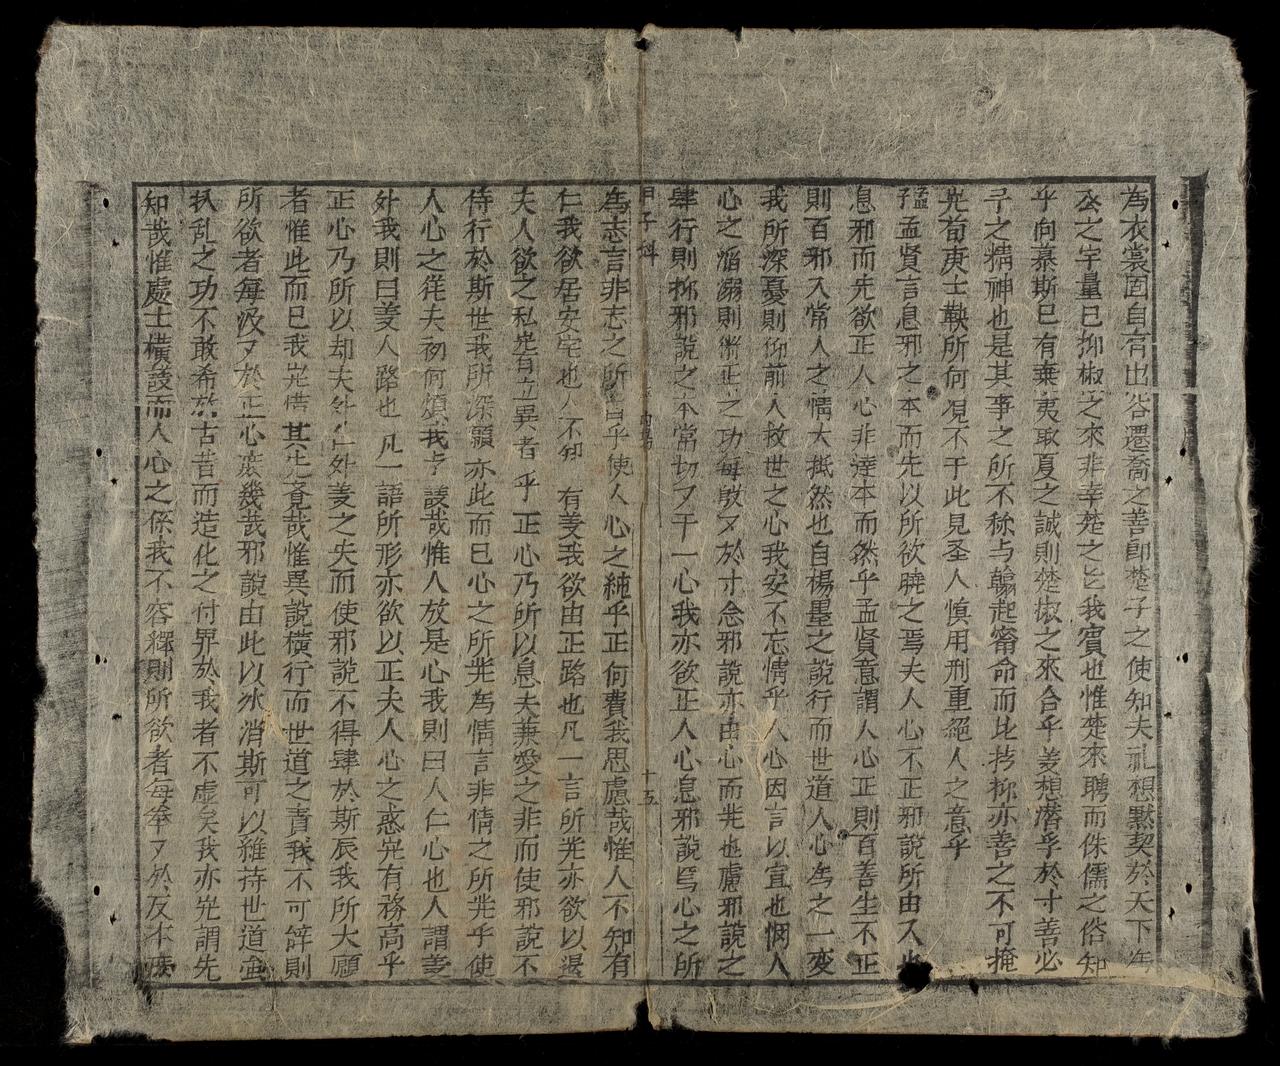 為衣裳固自有出谷遷喬之善即楚子之使知夫礼想黙契於天下每
公之宇量已抑椒之來非幸楚之 我賓也惟楚來聘而侏儒之俗知
乎向慕斯已有棄夷敢夏之誠則楚椒之來合乎羙想潜孚於寸善必
子之精神也是其事之所不称与 起甯命而比 抑亦善之不可掩
先荀庚士鞅所何 不于此見圣人慎用刑重絕人之意乎
孟 孟賢言息邪之本而先以所欲曉之焉夫人心不正邪說所由入也
息邪而先欲正人心非達本而然乎孟賢意謂人心正則百善生不正
則百邪入常人之情大抵然也自楊墨之說行而世道人心為之一変
我所深憂則仰前人救世之心我安不忘情乎人心因言以宣也悯人
心之滔溺則衛正之功每敢又於寸念邪說亦由心而𠒇也慮邪說之
肆行則抑邪說之本常切又于一心我亦欲正人心息邪說焉心之所
甲子科
十五
為志言非志之所 乎使人心之純乎正何費我思慮哉惟人不知有
仁我欲居安宅也人不知 有羙我欲由正路也凡一言所𠒇亦欲以遏
夫人欲之私 有立異者乎正心乃所以息夫兼愛之非而使邪說不
侍行於斯世我所深願亦此而已心之所𠒇為情言非情之所𠒇乎使
人心之従夫初何煩我 議哉惟人放是心我則曰人仁心也人謂羙
外我則曰羙人路也 凡一語所形亦欲以正夫人心之惑 有務高乎
正心乃所以却夫外仁外羙之失而使邪說不得肆於斯辰我所大願
者惟此而已我 其 哉惟異說横行而世道之責我不可辞則
所欲者每汲又於正心 幾哉邪說由此以氷消斯可以維持世道
扒乱之功不敢希於古昔而造化之付畀於我者不虚矣我亦 謂先
知哉惟處士横議而人心之係我不容釋則所欲者每拳又於反本